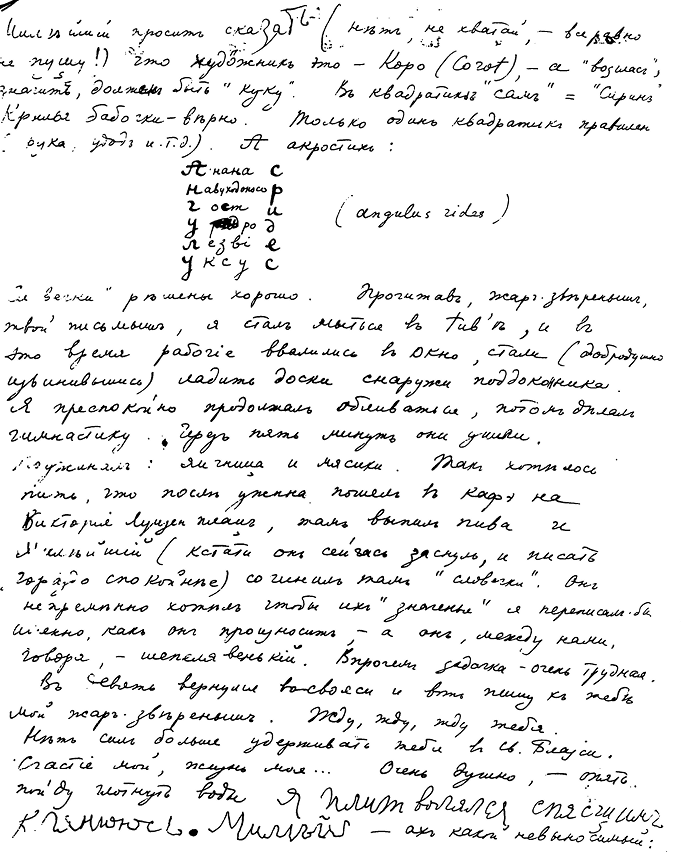 Милѣйшiй проситъ сказать (нѣтъ, не хватай, — все равно
не пущу!) что художникъ это – Коро (Corot), – а "возгласъ",
значитъ, долженъ быть "куку". Въ квадратикѣ "самъ" = "Сиринъ"
Крылья бабочки – вѣрно. Только одинъ квадратикъ правиленъ
(рука, удодъ и.т.д.). А акростихъ:
Анана с
Навуходоносо р
Гост и
У ро д
Лезвi е
Уксу с
(angulus rides)
рѣшены хорошо. Прочитавъ, жаръ-звѣренышъ,
твой письмышъ, я сталъ мыться въ tub'ѣ, и въ
это время рабочiе ввалились въ окно, стали (добродушно
извинившись) ладить доски снаружи подоконника.
Я преспокойно продолжалъ обливаться, потомъ дѣлалъ
гимнастику. Черезъ пять минутъ они ушли.
Поужиналъ: яичница и мясики. Такъ хотѣлось
пить, что послѣ ужина пошелъ въ кафэ на
Викторiя Луизенплацъ, тамъ выпилъ пива и
Милѣйшiй (кстати онъ сейчасъ заснулъ, и писать
гораздо спокойнѣе) сочинилъ тамъ "словечки". Онъ
непремѣнно хотѣлъ чтобы ихъ "значенье" я переписалъ бы
именно, какъ онъ произноситъ, – а онъ, между нами,
говоря, – шепелявенькiй. Впрочемъ задачка – очень трудная.
Въ девять вернулся восвояси и вотъ пишу къ тебѣ
мой жаръ-звѣренышъ. Жду, жду, жду тебя.
Нѣтъ силъ больше удерживать тебя въ Св. Блазiи.
Счастiе мой, жизнь моя... Очень душно, – опять
пойду глотнуть воды Я
– ахъ какой невыносимый: